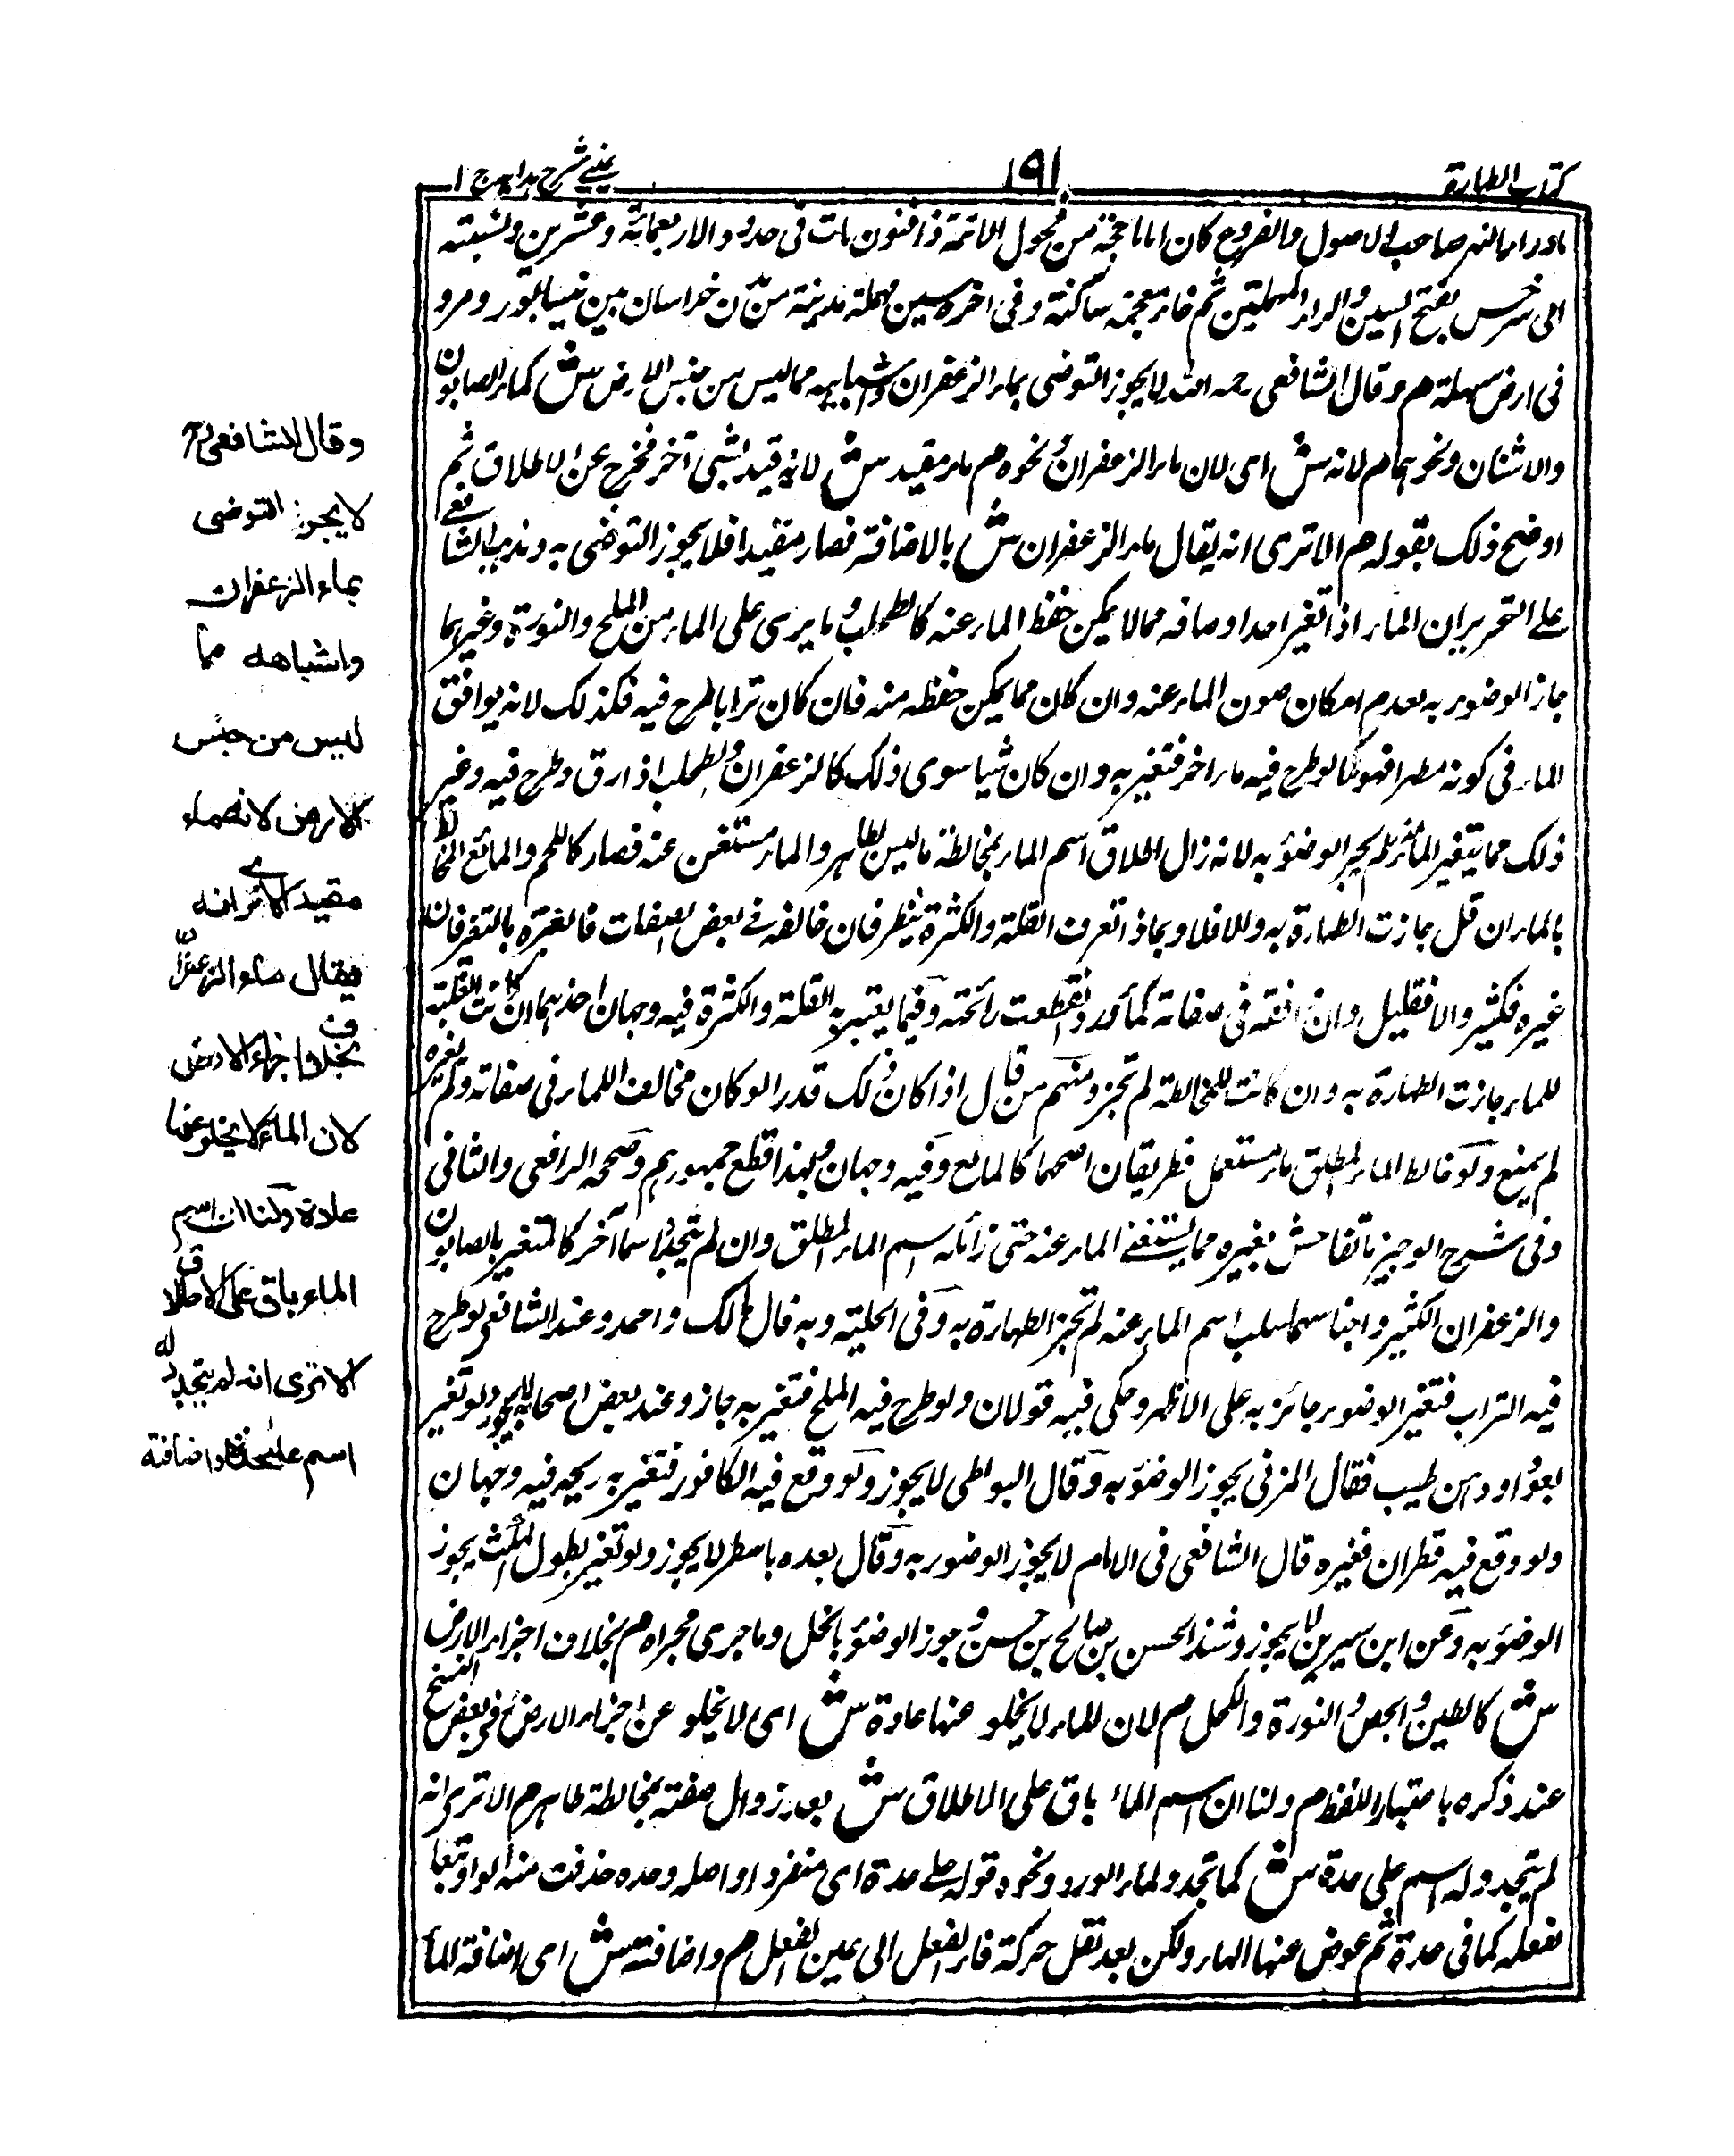 كتاب الطهارة
١٩١
عيني شرح هدايه ج ١
ماوراء النهر صاحب الاصول والفروع كان اماما حجة من فحول الائمة ذا فنون مات فى حدود الاربعمائة وعشرين ونسبته
الى سرخس بفتح السين والراء المهملتين ثم خاء معجمة ساكنة وفى اخره سين مهملة مدينة من مدن خراسان بين نيسابور ومرو
فى ارض سهلة هم وقال الشافعى رحمه الله لا يجوز التوضى بماء الزعفران واشباهه مما ليس من جنس الارض ش كماء الصابون
والاشنان ونحوهما هم لانه ش اى لان ماء الزعفران ونحوه هم ماء مقيد ش لانه قيد بشئ آخر فخرج عن الاطلاق ثم
اوضح ذلك بقوله هم الا ترى انه يقال ماء الزعفران ش بالاضافة فصار مقيدا فلا يجوز التوضى به ومذهب الشافعى
على التحرير ان الماء اذا تغير احد اوصافه مما لا يمكن حفظ الماء عنه كالطحلب وما يرى على الماء من الملح والنورة وغيرهما
جاز الوضوء به لعدم امكان صون الماء عنه وان كان مما يمكن حفظه منه فان كان ترابا طرح فيه فكذلك لانه يوافق
الماء فى كونه مطهرا فهو كما لو طرح فيه ماء اخر فتغير به وان كان شيا سوى ذلك كالزعفران والطحلب اذا رق وطرح فيه وغير
ذلك مما يتغير الماء منه لم يجز الوضوء به لانه زال اطلاق اسم الماء بمخالطة ما ليس بطاهر والماء مستغن عنه فصار كاللحم والمائع المخالط
بالماء ان قل جازت الطهارة به والا فلا وبماذا تعرف القلة والكثرة ينظر فان خالفه فى بعض الصفات فالعبرة بالتغير فان
غيره فكثير والا فقليل وان وافقه فى صفاته كماء ورد انقطعت رائحته وفيما يعتبر به القلة والكثرة فيه وجهان احدهما ان كانت الغلبة
للماء جازت الطهارة به وان كانت للمخالطة لم تجز ومنهم من قال اذا كان ذلك قدرا لو كان مخالفا للماء فى صفاته ولم يغيره
لم يمنع ولو خالط الماء المطلق ماء مستعمل فطريقان اصحهما كالمائع وفيه وجهان وبهذا قطع جمهورهم وصححه الرافعى والثانى
وفى شرح الوجيز ما تفاحش تغيره مما يستغنى الماء عنه حتى زايله اسم الماء المطلق وان لم يتجدد اسما آخر كالمتغير بالصابون
والزعفران الكثير واجناسهما سلب اسم الماء عنه لم تجز الطهارة به وفى الحلية وبه قال مالك واحمد وعند الشافعى لو طرح
فيه التراب فتغير الوضوء جائز به على الاظهر وحكى فيه قولان ولو طرح فيه الملح فتغير به جاز وعند بعض اصحابه لا يجوز ولو تغير
بعود او دهن طيب فقال المزنى يجوز الوضوء به وقال البويطى لا يجوز ولو وقع فيه الكافور فتغير به ريحه فيه وجهان
ولو وقع فيه قطران فغيره قال الشافعى فى الامام لا يجوز الوضوء به وقال بعده باسطر لا يجوز ولو تغير بطول المكث يجوز
الوضوء به وعن ابن سيرين لا يجوز وشذ الحسن بن صالح بن حسن وجوز الوضوء بالخل وما جرى مجراه هم بخلاف اجزاء الارض
ش كالطين والجص والنورة والكحل هم لان الماء لا يخلو عنها عادة ش اى لا يخلو عن اجزاء الارض وفى بعض النسخ
عند ذكره باعتبار اللفظ هم ولنا ان اسم الماء باق على الاطلاق ش بعد زوال صفته بمخالطة طاهر هم الا ترى انه
لم يتجدد له اسم على حدة ش كما تجدد لماء الورد ونحوه قوله على حدة اى منفردا واصله وحده حذفت منه الواو تبعا
لفعله كما فى عدة ثم عوض عنها الهاء ولكن بعد نقل حركة فاء الفعل الى عين الفعل هم واضافته ش اى اضافة الماء
وقال الشافعى رح
لا يجوز التوضى
بماء الزعفران
واشباهه مما
ليس من جنس
الارض لانه ماء
مقيد الا ترى انه
يقال ماء الزعفران
بخلاف اجزاء الارض
لان الماء لا يخلو عنها
عادة ولنا ان اسم
الماء باق على الاطلاق
الا ترى انه لم يتجدد له
اسم على حدة واضافته